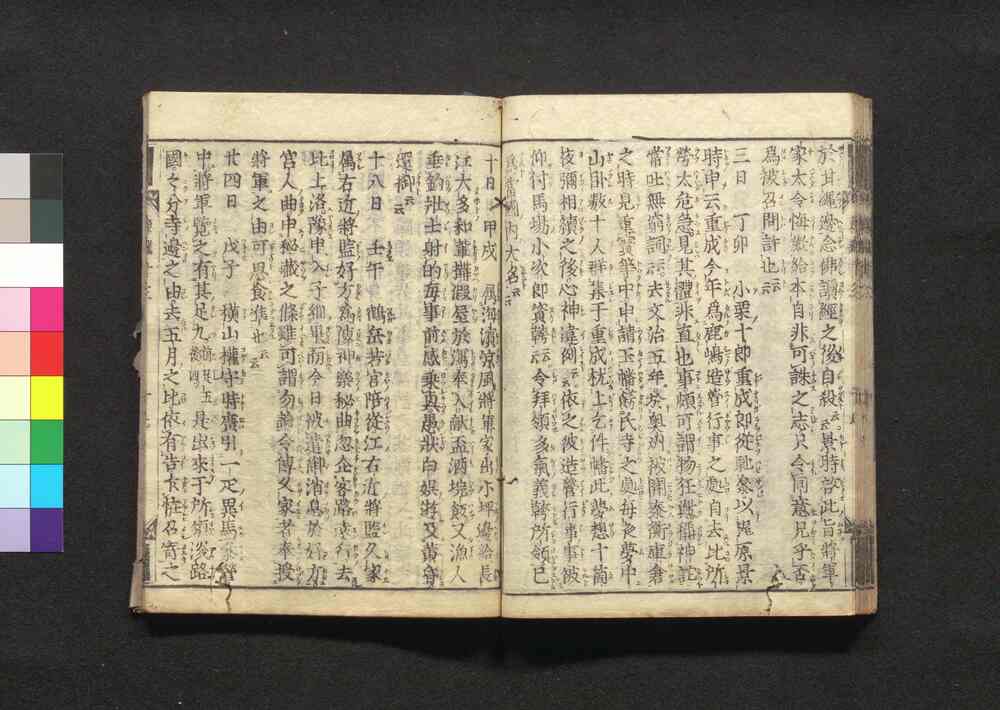 於其繩邊念佛讀經之後自殺云云景時啓此旨將軍
家太令悔歎給本自非可誅之志只今同意兄乎否
爲被召問許也云云
三日　丁卯　小栗十郎重成郎從馳參以梶原景
時申云重成今年爲鹿嶋造營行事之處自去比所
勞太危急見其體非直也事頗可謂物狂歟稱神託
常吐無窮詞云云去文治五年於奥州被開泰衡庫倉
之時見重寶等中申請玉幡餝氏寺之處每夜夢中
山臥數十人群集于重成枕上乞件幡此夢想十箇
夜彌相續之後心神違例云云依之彼造營行事事被
仰付馬塲小次郎資幹云云令拜領多氣義幹所領已
爲常國內大名云云
十日　甲戌　属海濱凉風將軍家出小坪邊給長
江大多和輩搆假屋於潟奉入献盃酒垸飯又漁人
垂釣壯士射的每事前感乗興愚狀白娛將及黄昏
還御云云
十八日　壬午　鶴岳若宮陪從江右近將監久家
属右近將監好方爲傳神樂秘曲忽企客路幾行去
比上洛隊申入子細東而今日被遣御消息於好方
宮人曲中秘藏之條雖可謂勿論令傳久家者奉授
將軍之由可思食准也云云
廿四日　戊子　橫山權守時廣引一疋異馬參營
中將軍覽之有其足九前足五後足四是出來于所領淡路
國々分寺邊之由去五月之比依有告下怯召寄之